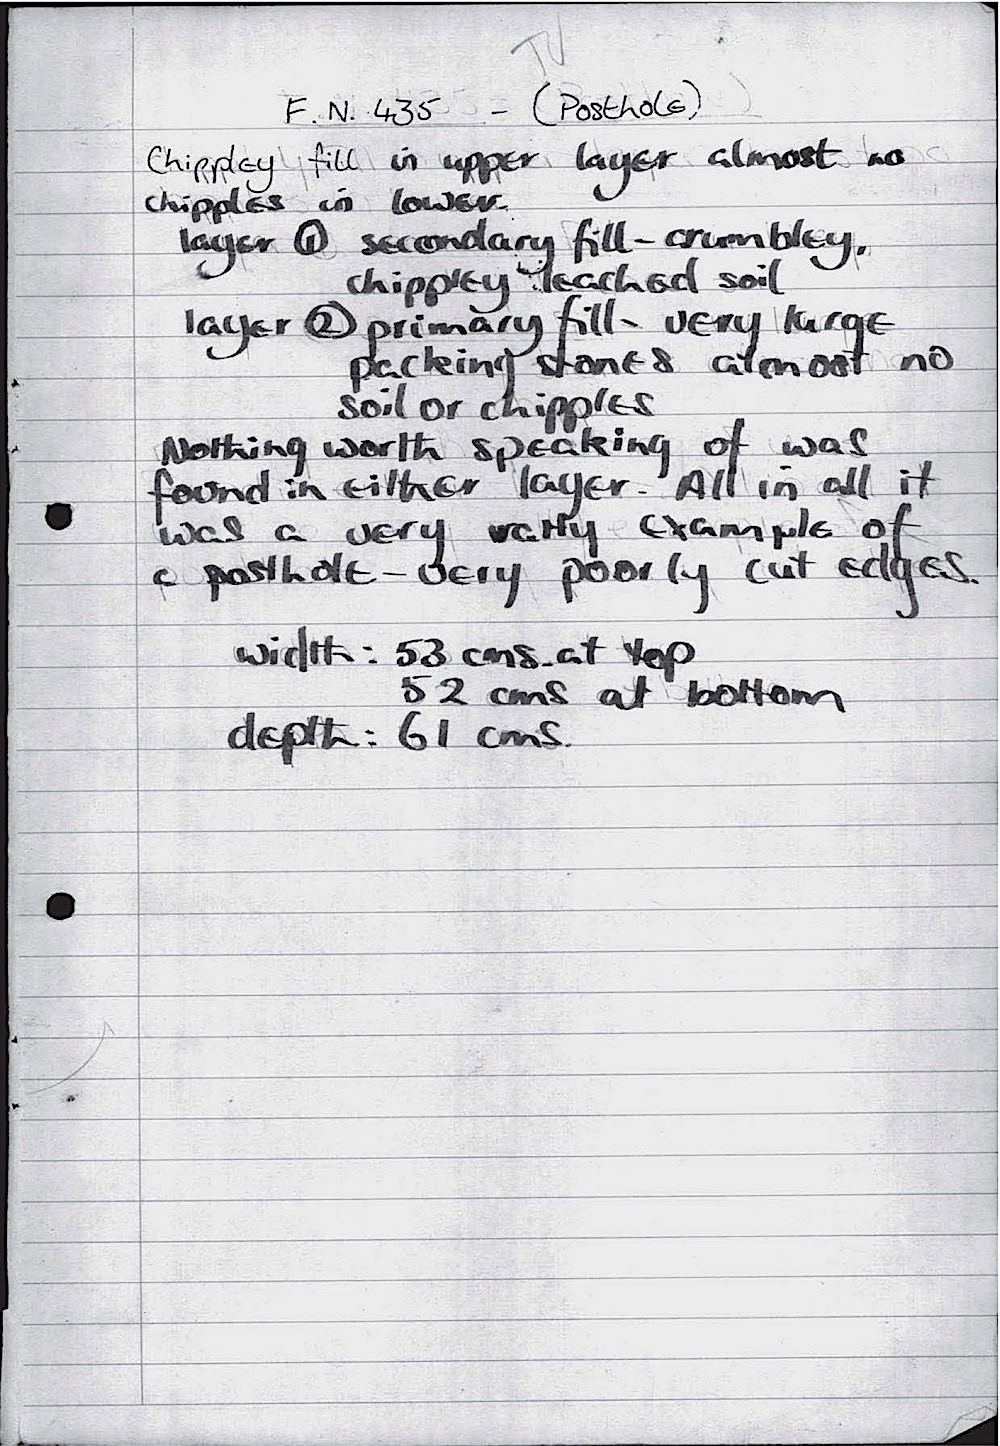 TJ
F.N. 435 - (Posthole)
Chippley fill in upper layer almost no
chipples in lower.
layer ① secondary fill - crumbley,
chippley leached soil
layer ② primary fill - very large
packing stones almost no
soil or chipples
Nothing worth speaking of was
found in either layer. All in all it
was a very example of
a posthole - very poorly cut edges.
width: 53 cms. at top
52 cms at bottom
depth: 61 cms.